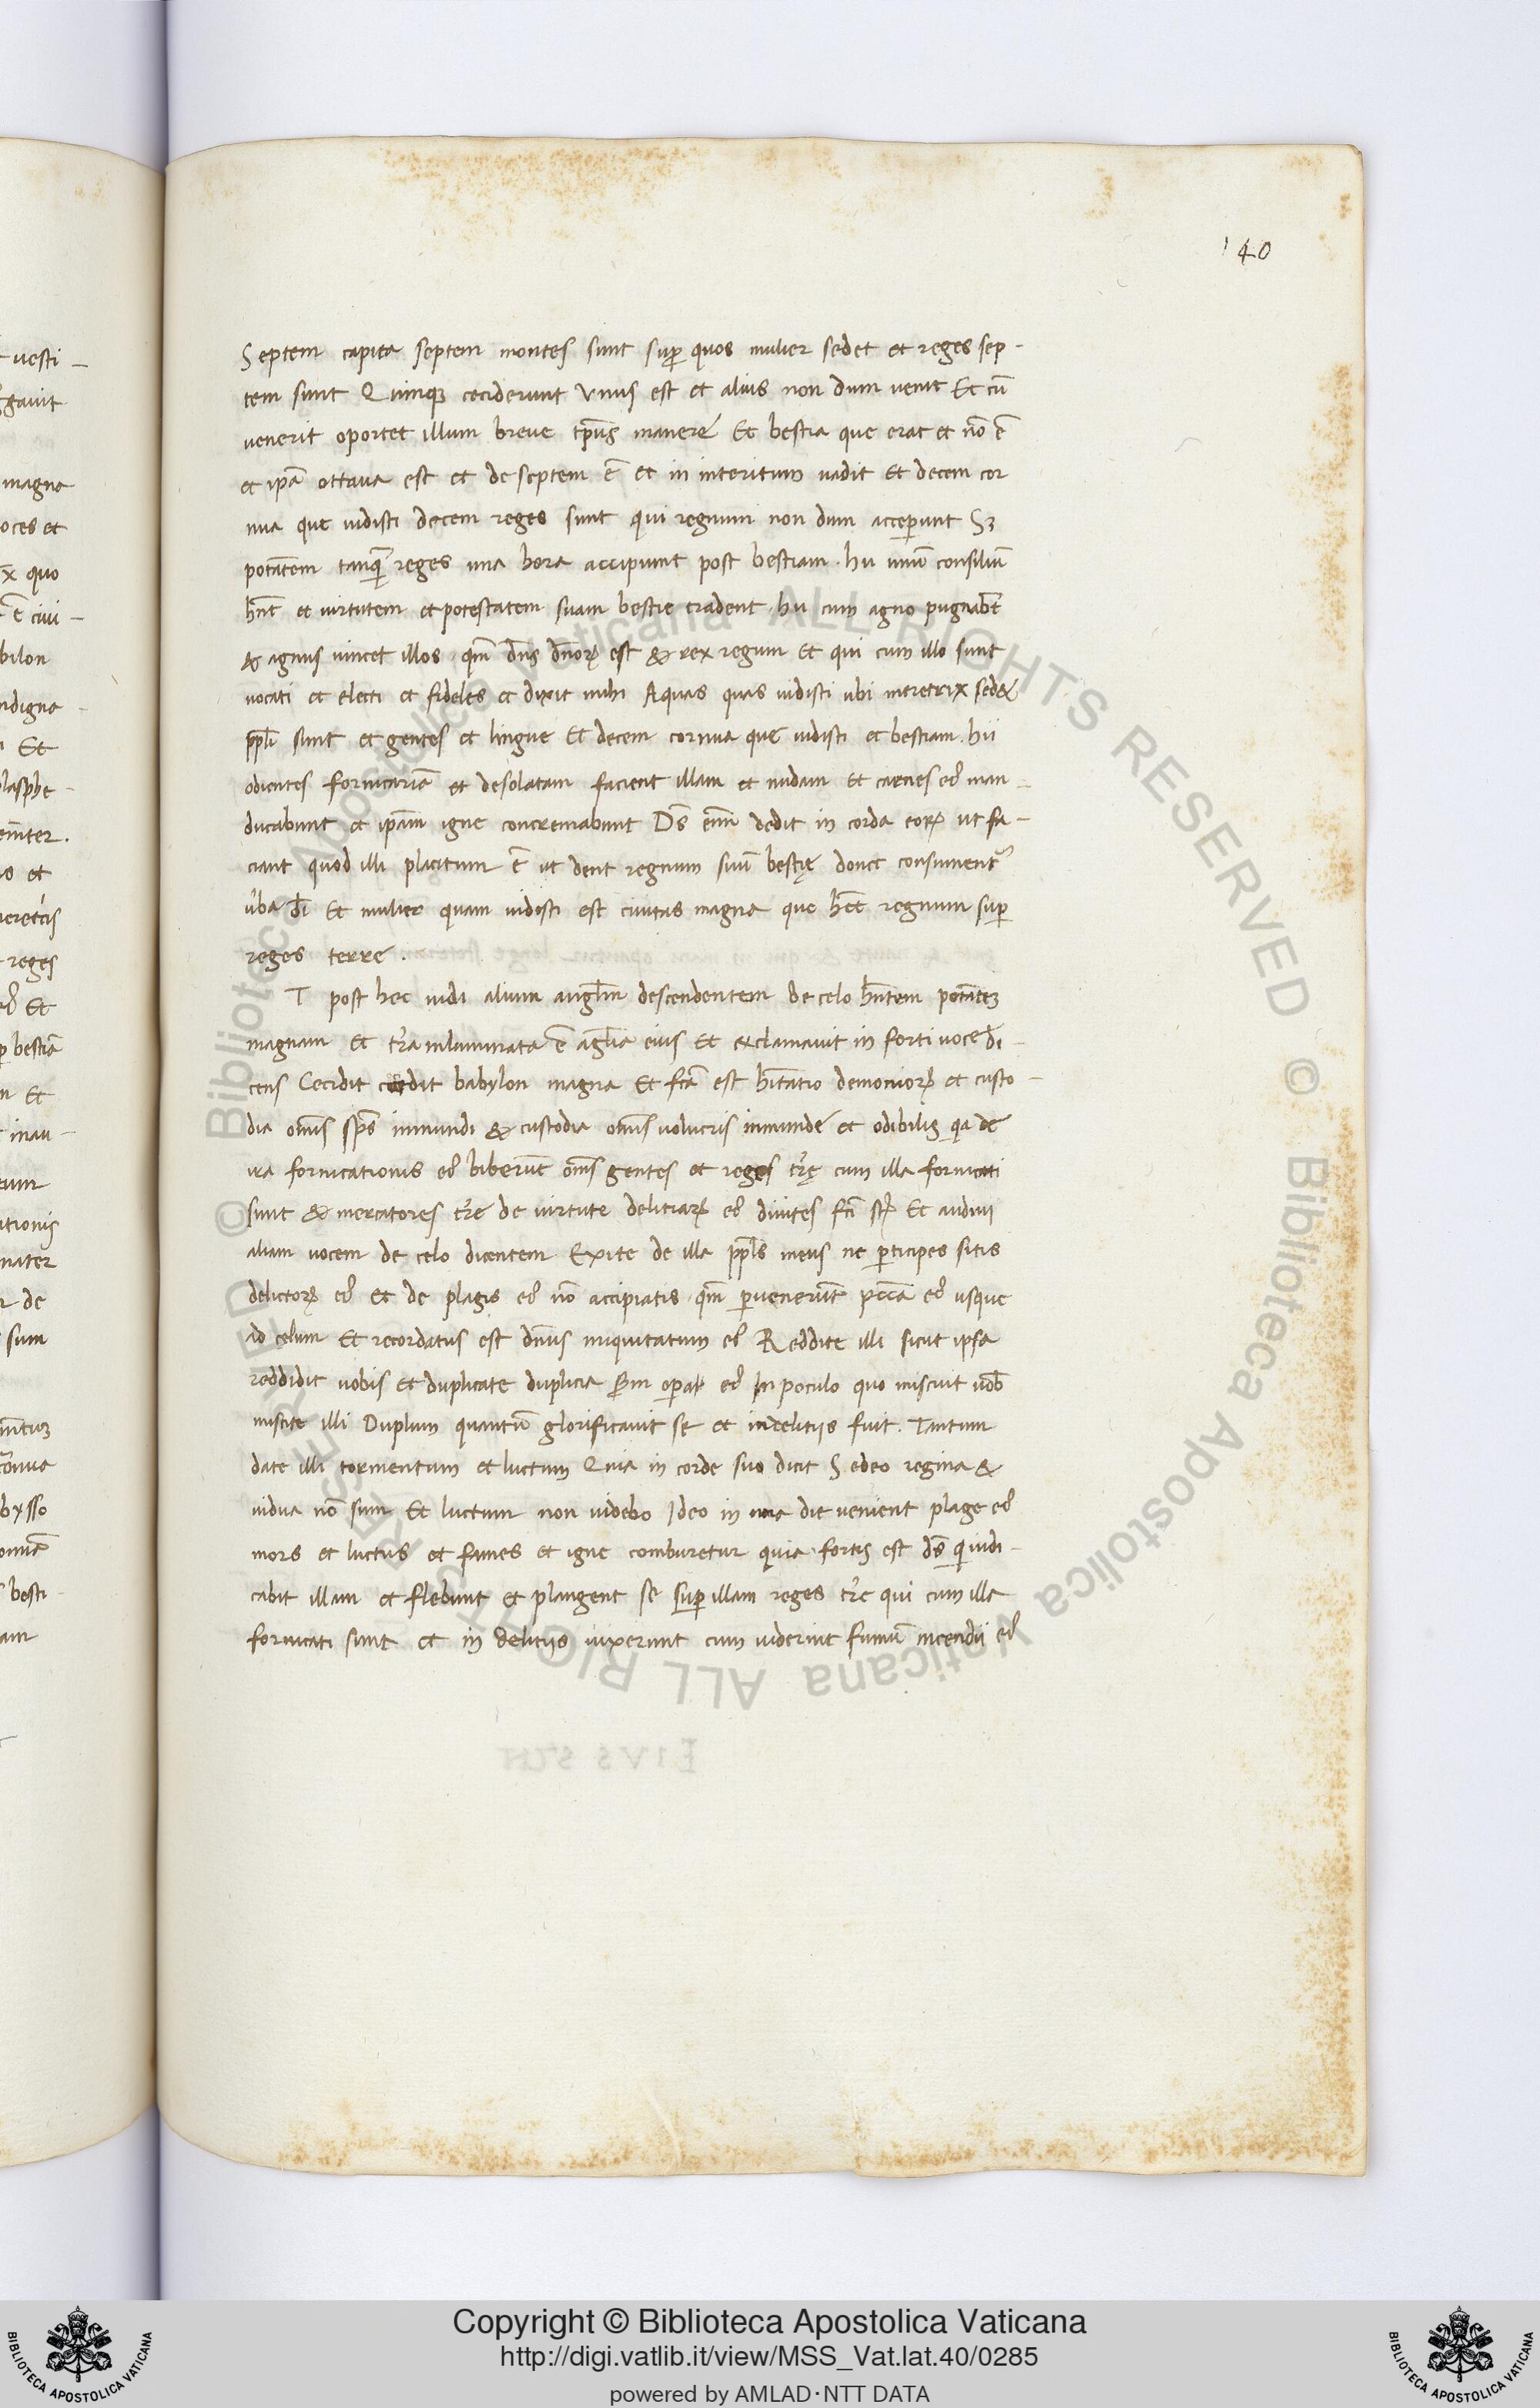 140
Septem capita septem montes sunt sup̱ quos mulier sedet et reges sep-
tem sunt Quinqꝫ ceciderunt Vnus est et alius non dum uenit Et cū
uenerit oportet illum breue tp̄us manere Et bestia que erat et nō ē
et ip̄a ottaua est et de septem ē et in interitum uadit Et decem cor
nua que uidisti decem reges sunt qui regnum non dum acceꝑunt Sꝫ
potātem tanqͣ reges una hora accipiunt post bestiam . hii unū consiliū
hn̄t et uirtutem et potestatem suam bestie tradent . hii cum agno pugnabt̄
& agnus uincet illos . qm̄ dn̄s dn̄oꝝ est & rex regum Et qui cum illo sunt
uocati et electi et fideles et dixit mihi Aquas quas uidisti ubi meretrix sedet
ppl̄i sunt et gentes et lingue Et decem cornua que uidisti et bestiam . hii
odientes fornicariā et desolatam facient illam et nudam et carnes eiꝰ man-
ducabunt et ip̄am igne concremabunt Ds̄ enī dedit in corda eoꝝ ut fa-
ciant quod illi placitum ē ut dent regnum suū bestię donec consument᷑
u̓ba dī Et mulier quam uidisti est ciuitas magna que hēt regnum sup̱
reges terre .
T post hec uidi alium angl̄m descendentem de celo hn̄tem potāteꝫ
magnam et tr̄a inluminata ē agl̄ia eius Et exclamauit in forti uoce di-
cens Cecidit cecidit babylon magna Et fc̄a est hītatio demonioꝝ et custo-
dia om̄is sp̄s inmundi & custodia om̄is uolucris inmunde et odibilis qa de
ira fornicationis eiꝰ biberūt om̄s gentes et reges tr̄ę cum illa fornicati
sunt & mercatores tr̄e de uirtute delitiaꝝ eiꝰ diuites fc̄i st Et audiui
aliam uocem de celo dicentem Exite de illa ppl̄s meus ne ꝑticipes sitis
delictoꝝ eiꝰ Et de plagis eiꝰ nō accipiatis . qm̄ ꝑuenerūt pcc̄a eiꝰ usque
ad celum Et recordatus est dn̄us iniquitatum eiꝰ Reddite illi sicut ipsa
reddidit uobis et duplicate duplicia
eiꝰ In poculo quo miscuit uob̄
miscite illi Duplum quantū glorificauit se et indelitiis fuit . Tantum
date illi tormentum et luctum Quia in corde suo dicit Sedeo regina &
uidua nō sum Et luctum non uidebo Ideo in una die uenient plage eiꝰ
mors et luctus et fames et igne comburetur quia fortis est ds̄ qi iudi-
cabit illam et flebunt et plangent se sup̱ illam reges tr̄e qui cum illa
fornicati sunt et in delitiis uixerunt cum uiderint fumū incendii eiꝰ
Copyright © Biblioteca Apostolica Vaticana
http://digi.vatlib.it/view/MSS_Vat.lat.40/0285
powered by AMLAD·NTT DATA
BIBLIOTECA APOSTOLICA VATICANA
BIBLIOTECA APOSTOLICA VATICANA